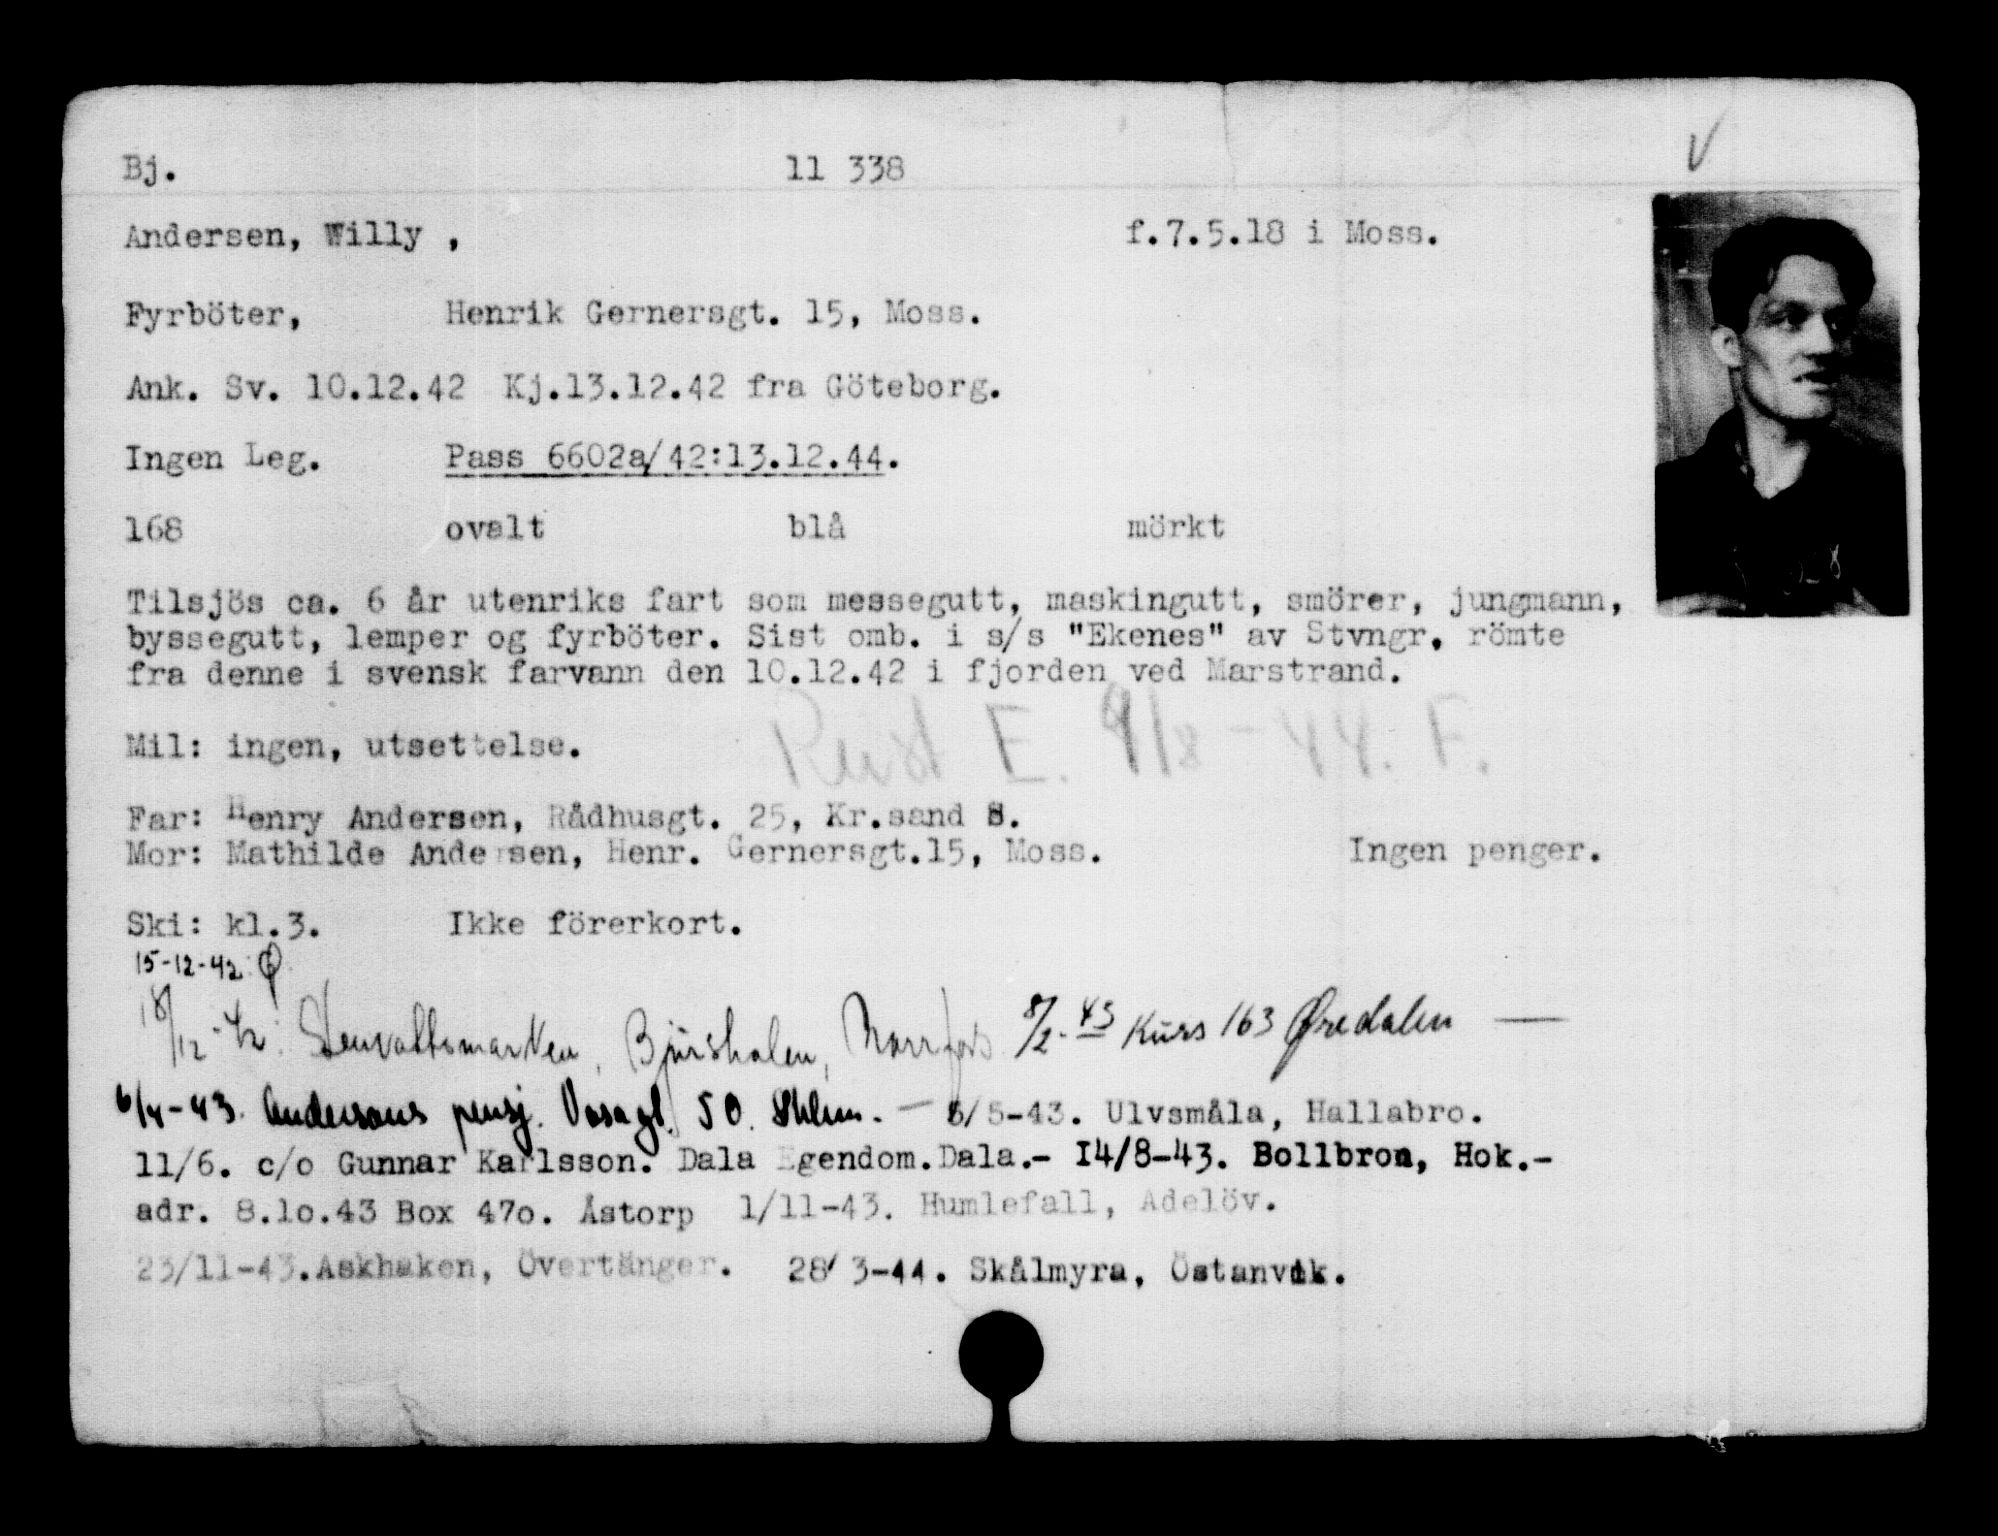 Bj. 11 338 V
Andersen, Willy , f.7.5.18 i Moss.
Fyrböter, Henrik Gernersgt. 15, Moss.
Ank. Sv. 10.12.42 Kj.13.12.42 fra Göteborg.
Ingen Leg. Pass 6602a/42:13.12.44.
168 ovalt blå mörkt
Tilsjös ca. 6 år utenriks fart som messegutt, maskingutt, smörer, jungmann,
byssegutt, lemper og fyrböter. Sist omb. i s/s "Ekenes" av Stvngr, römte
fra denne i svensk farvann den 10.12.42 i fjorden ved Marstrand.
Reist E. 9/8-44. F.
Mil: ingen, utsettelse.
Far: Henry Andersen, Rådhusgt. 25, Kr.sand S.
Mor: Mathilde Andersen, Henr. Gernersgt.15, Moss. Ingen penger.
Ski: kl.3. Ikke förerkort.
15-12-42
18/12-42: Bjursholen, Norrfors 8/2-43 Kurs 163 Øredalen —
6/4-43. Anderssons pensj. Vasagt. 50. Sthlm. — 5/5-43. Ulvsmåla, Hallabro.
11/6. c/o Gunnar Karlsson. Dala Egendom.Dala.- 14/8-43. Bollbron, Hok.-
adr. 8.1o.43 Box 47o. Åstorp 1/11-43. Humlefall, Adelöv.
23/11-43.Askhaken, Övertänger. 28/3-44. Skålmyra, Östanvik.